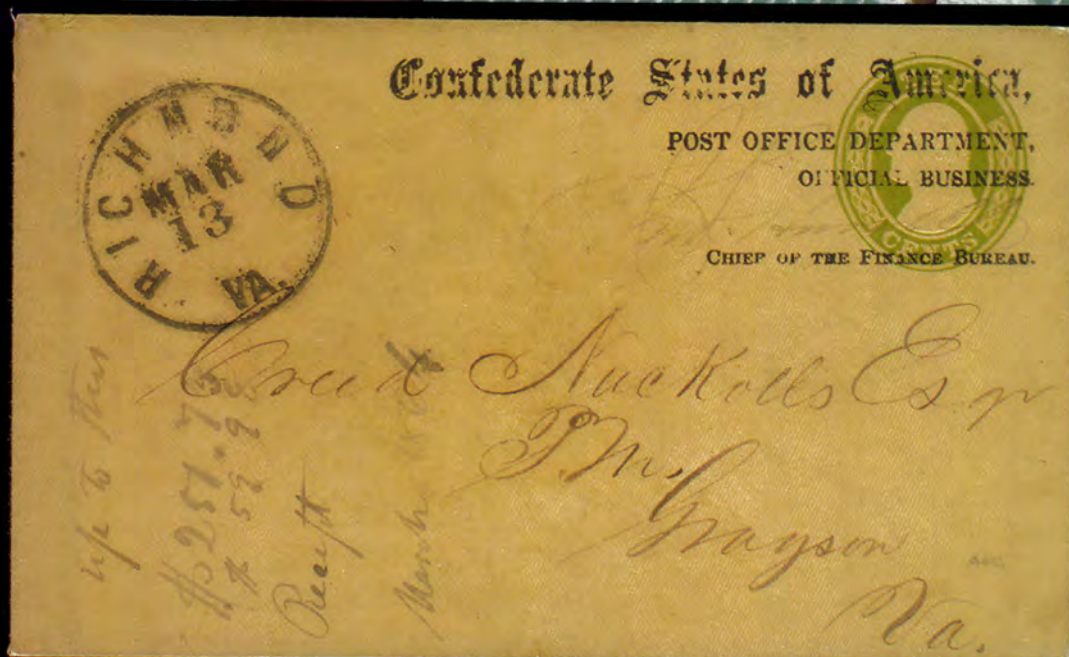 Confederate States of America,
POST OFFICE DEPARTMENT,
OFFICIAL BUSINESS.
CHIEF OF THE FINANCE BUREAU.
CENTS
RICHMOND
MAR
13
VA.
Creed Nuckolls Esqr
P.M.
Grayson
Va.
up to
$251.73
$ 59.98
Receipt
March